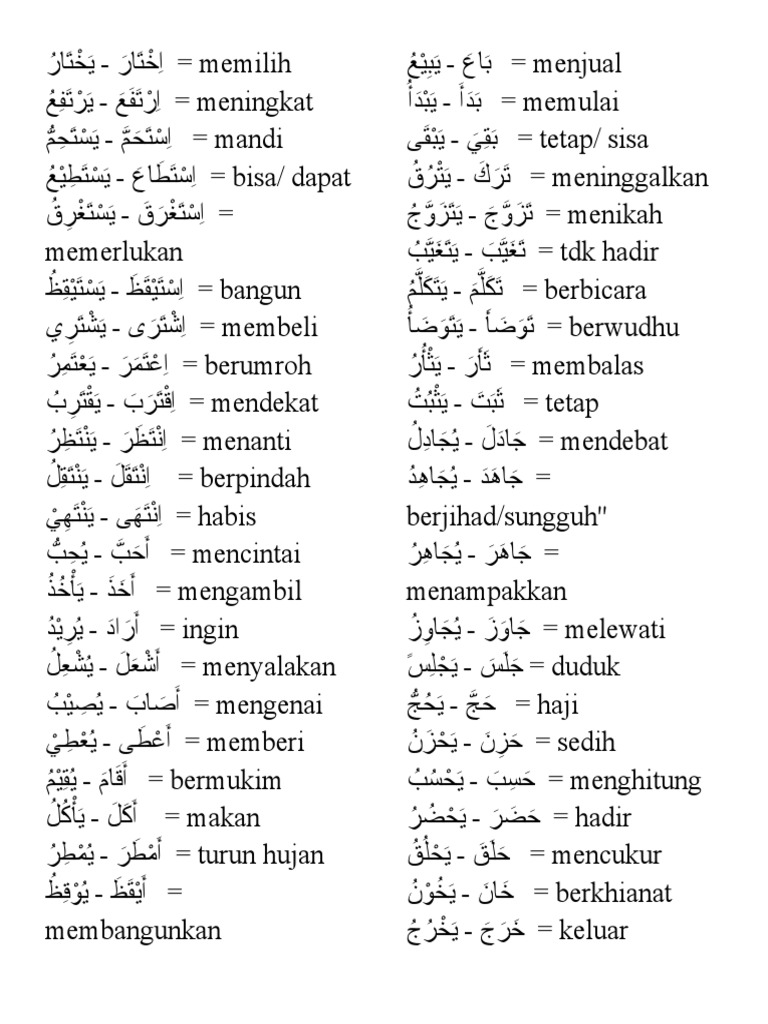 اِخْتَارَ - يَخْتَارُ = memilih
اِرْتَفَعَ - يَرْتَفِعُ = meningkat
اِسْتَحَمَّ - يَسْتَحِمُّ = mandi
اِسْتَطَاعَ - يَسْتَطِيْعُ = bisa/ dapat
اِسْتَغْرَقَ - يَسْتَغْرِقُ =
memerlukan
اِسْتَيْقَظَ - يَسْتَيْقِظُ = bangun
اِشْتَرَى - يَشْتَرِي = membeli
اِعْتَمَرَ - يَعْتَمِرُ = berumroh
اِقْتَرَبَ - يَقْتَرِبُ = mendekat
اِنْتَظَرَ - يَنْتَظِرُ = menanti
اِنْتَقَلَ - يَنْتَقِلُ = berpindah
اِنْتَهَى - يَنْتَهِيْ = habis
أَحَبَّ - يُحِبُّ = mencintai
أَخَذَ - يَأْخُذُ = mengambil
أَرَادَ - يُرِيْدُ = ingin
أَشْعَلَ - يُشْعِلُ = menyalakan
أَصَابَ - يُصِيْبُ = mengenai
أَعْطَى - يُعْطِيْ = memberi
أَقَامَ - يُقِيْمُ = bermukim
أَكَلَ - يَأْكُلُ = makan
أَمْطَرَ - يُمْطِرُ = turun hujan
أَيْقَظَ - يُوْقِظُ =
membangunkan
بَاعَ - يَبِيْعُ = menjual
بَدَأَ - يَبْدَأُ = memulai
بَقِيَ - يَبْقَى = tetap/ sisa
تَرَكَ - يَتْرُقُ = meninggalkan
تَزَوَّجَ - يَتَزَوَّجُ = menikah
تَغَيَّبَ - يَتَغَيَّبُ = tdk hadir
تَكَلَّمَ - يَتَكَلَّمُ = berbicara
تَوَضَأَ - يَتَوَضَأُ = berwudhu
ثَأَرَ - يَثْأُرُ = membalas
ثَبَتَ - يَثْبُتُ = tetap
جَادَلَ - يُجَادِلُ = mendebat
جَاهَدَ - يُجَاهِدُ =
berjihad/sungguh"
جَاهَرَ - يُجَاهِرُ =
menampakkan
جَاوَزَ - يُجَاوِزُ = melewati
جَلَسَ - يَجْلِسً = duduk
حَجَّ - يَحُجُّ = haji
حَزِنَ - يَحْزَنُ = sedih
حَسِبَ - يَحْسُبُ = menghitung
حَضَرَ - يَحْضُرُ = hadir
حَلَقَ - يَحْلُقُ = mencukur
خَانَ - يَخُوْنُ = berkhianat
خَرَجَ - يَخْرُجُ = keluar